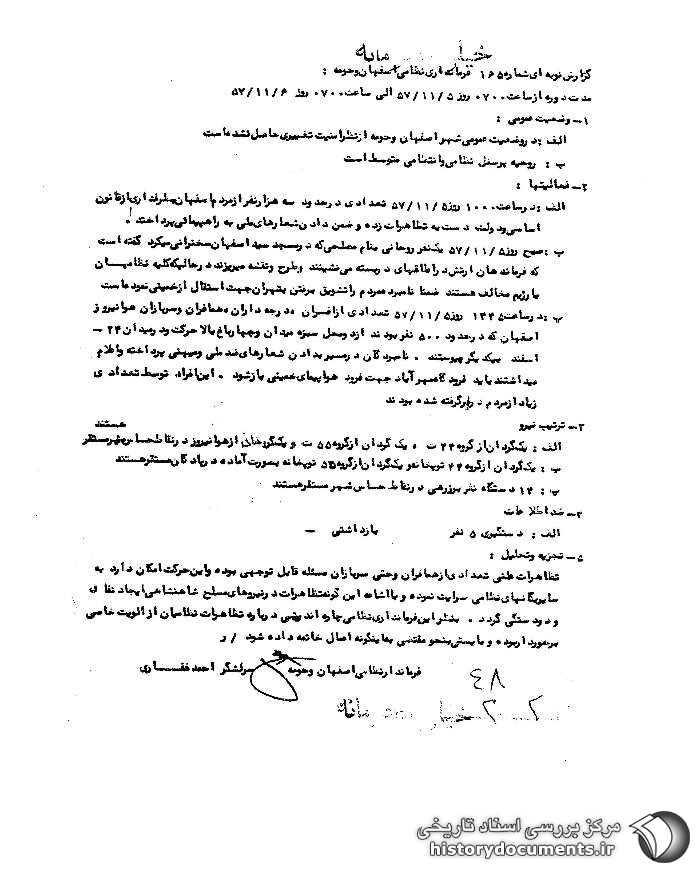 خیلی محرمانه
گزارش نوبه ای شماره ۱۶۵ فرمانداری نظامی اصفهان وحومه :
مدت دوره از ساعت ۰۷۰۰ روز ۵۷/۱۱/۵ الی ساعت ۰۷۰۰ روز ۵۷/۱۱/۶
۱ـ وضعیت عمومی :
الف : در وضعیت عمومی شهر اصفهان وحومه از نظر امنیت تغییری حاصل نشده است
ب : روحیه پرسنل نظامی وانتظامی متوسط است
۲ـ فعالیتها :
الف : در ساعت ۱۰۰۰ روز ۵۷/۱۱/۵ تعدادی در حدود سه هزار نفر از مردم اصفهان بطرفداری از قانون
اساسی ودولت دست به تظاهرات زده و ضمن دادن شعارهای ملی به راهپیمائی پرداختند !
ب : صبح روز ۵۷/۱۱/۵ یکنفر روحانی بنام مصلحی که در مسجد سید اصفهان سخنرانی میکرد گفته است
که فرماندهان ارتش در اطاقهای دربسته می نشینند وطرح ونقشه میریزند درحالیکه کلیه نظامیان
با رژیم مخالف هستند ضمنا نامبرده مردم را تشویق برفتن بتهران جهت استقبال از خمینی نموده است
پ : در ساعت ۱۴۴۵ روز ۵۷/۱۱/۵ تعدادی از افسران درجه داران وهمافران وسربازان هوانیروز
اصفهان که در حدود ۵۰۰ نفر بودند از دومحل سبزه میدان وچهارباغ بالا حرکت ودر میدان ۲۴ ـ
اسفند بیکدیگر پیوستند . نامبردگان در مسیر بدادن شعارهای ضد ملی ومیهنی پرداخته واعلام
میداشتند باید فرودگاه مهرآباد جهت فرود هواپیمای خمینی باز شود . این افراد توسط تعدادی
زیاد از مردم در برگرفته شده بودند
۳ـ ترتیب نیرو
الف : یک گردان از گروه ۴۴ ت ، یک گردان از گروه ۵۵ ت و یک گروهان از هوانیروز در نقاط حساس شهر مستقر هستند
ب : یک گردان از گروه ۴۴ توپخانه و یک گردان از گروه ۵۵ توپخانه بصورت آماده در پادگان مستقر هستند
پ : ۱۴ دستگاه نفربر زرهی در نقاط حساس شهر مستقر هستند
۴ـ ضد اطلاعات
الف : دستگیری ۵ نفر بازداشتی ـ
۵ـ تجزیه وتحلیل :
تظاهرات علنی تعدادی از همافران وحتی سربازان مسئله قابل توجهی بوده واین حرکت امکان دارد به
سایر یگانهای نظامی سرایت نموده و با اشاعه این گونه تظاهرات در نیروهای مسلح شاهنشاهی ایجاد نفاق
و دودستگی گردد . بنظر این فرمانداری نظامی چاره اندیشی درباره تظاهرات نظامیان از الویت خاصی
برخوردار بوده و بایستی بنحو مقتضی باینگونه اعمال خاتمه داده شود / ر
فرماندار نظامی اصفهان وحومه سرلشگر احمد غفاری
۴۸
۲ ۲ خیلی محرمانه
مرکز بررسی اسناد تاریخی
historydocuments.ir